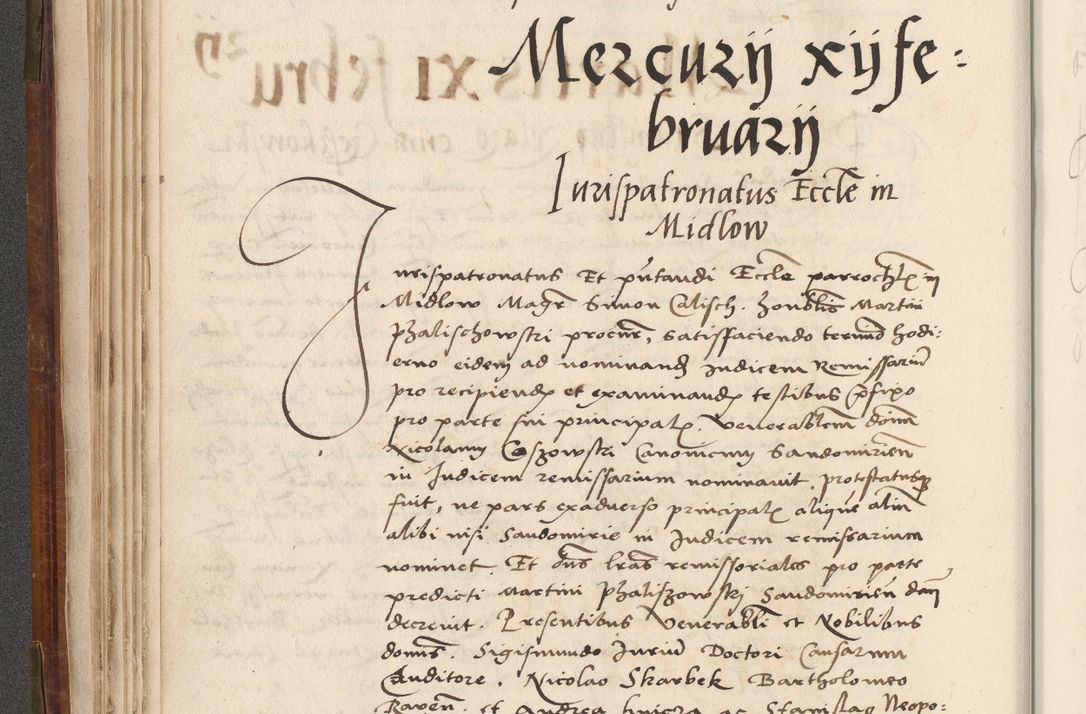 Mercurij xij fe=
bruarij
Jurispatronatus Eccle in
Midlow
Jurispatronatus Et pntandi Eccle parrochlem in
Midlow Magr Simon Calisch. honblis Martini
Phalischowski procur, satisffaciendo termino hodi=
erno eidem ad nominand Judicem Remissarium
pro recipiend et examinand testibus prefixo
pro parte sui principal. Venerabilem domin
Nicolaum Coszowski Canonicum Sandomirien
in Judicem remissarium nominavit, protestatusq
fuit, ne pars exadverso principal alique alium
alibi nisi Sandomirie in Judicem remissarium
nominet. Et dns lras remissoriales pro parte
predicti Martini Phaliszowskj Sandomirien dan
decrevit. Presentibus Venerabli et Nobilibus
domis. Sigismundo Jurium Doctori Causarum
Auditore, Nicolao Skarbek Bartholomeo
et Andrea ac Stanislao Neopo=